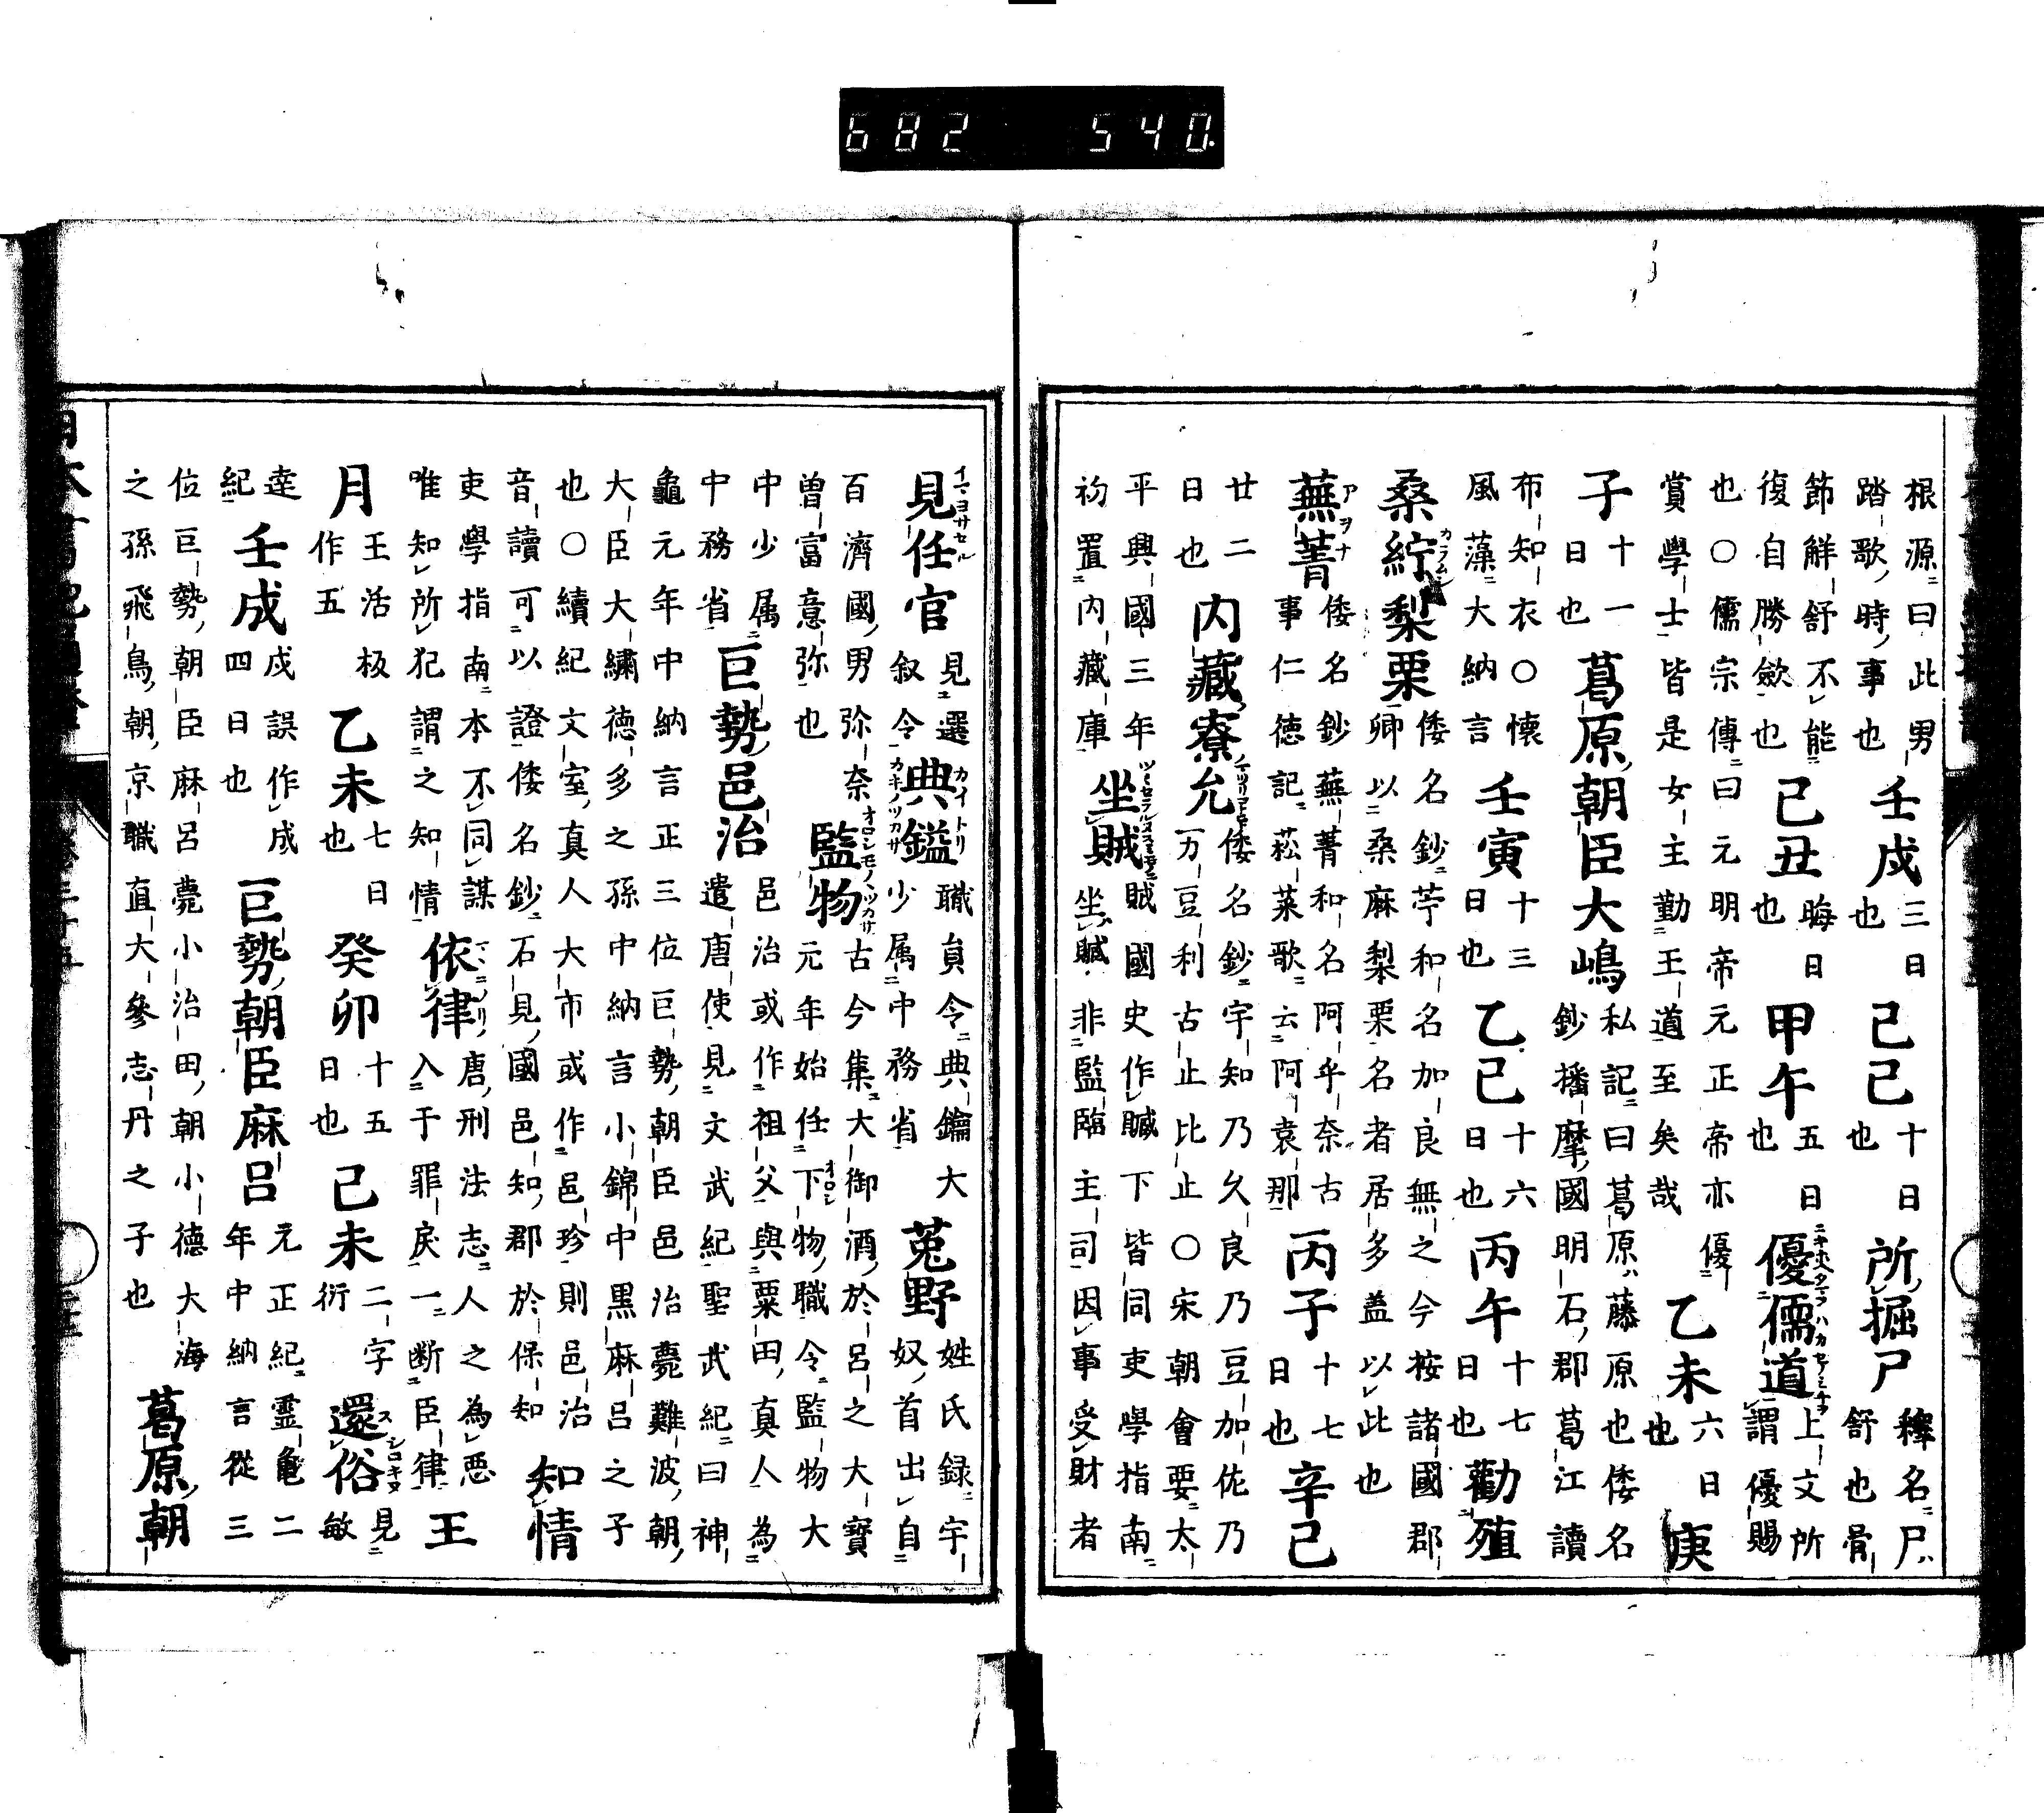 682 540
根源曰此男
踏歌時事也
壬戌三日也己巳十日也所掘尸
釋名尸
舒也骨
節解舒不能
復自勝斂也
己丑晦日也甲午五日也優儒道
上文所
謂優賜
也○儒宗傳曰元明帝元正帝亦優
賞學士皆是女主勤王道至矣哉
乙未六日也庚
子十一日也葛原朝臣大嶋
私記曰葛原ハ藤原也倭名
鈔播摩國明石郡葛江讀
布知衣○懷
風藻大納言
壬寅十三日也乙巳十六日也丙午十七日也勸殖
桑紵梨栗
倭名鈔苧和名加良無之今桉諸國郡
卿以桑麻梨栗名者居多蓋以此也
蕪菁
アヲナ
倭名鈔蕪菁和名阿乎奈古
事仁德記菘菜歌云阿袁那
丙子十七日也辛巳
廿二
日也
内藏寮允
倭名鈔宇知乃久良乃豆加佐乃
一万豆利古止比止○宋朝會要太
平興國三年
初置内藏庫
坐賊
賊國史作贓下皆同吏學指南
坐贓非監臨主司因事受財者
見任官
見選
叙令
典鎰
カイトリ
カギノツカサ
職員令典鑰大
少属中務省
菟野
姓氏録宇
奴首出自
百濟國男弥奈
曽富意弥也
監物
オロシモノヽツカサ
古今集大御酒於呂之大寶
元年始任下物職令監物大
中少属
中務省
巨勢邑治
邑治或作祖父與粟田真人為
遣唐使見文武紀聖武紀曰神
龜元年中納言正三位巨勢朝臣邑治薨難波朝
大臣大繍德多之孫中納言小錦中黒麻呂之子
也○續紀文室真人大市或作邑珍則邑治
音讀可以證倭名鈔石見國邑知郡於保知
知情
吏學指南本不同謀
唯知所犯謂之知情
依律
唐刑法志人之為悪
入于罪戻一断臣律
王
月王活板作五乙未七日也癸卯十五日也己未二字衍還俗
見
敏
達
紀
壬成
戍誤作成
四日也
巨勢朝臣麻呂
元正紀霊龜二
年中納言從三
位巨勢朝臣麻呂薨小治田朝小德大海
之孫飛鳥朝京職直大參志丹之子也
葛原朝